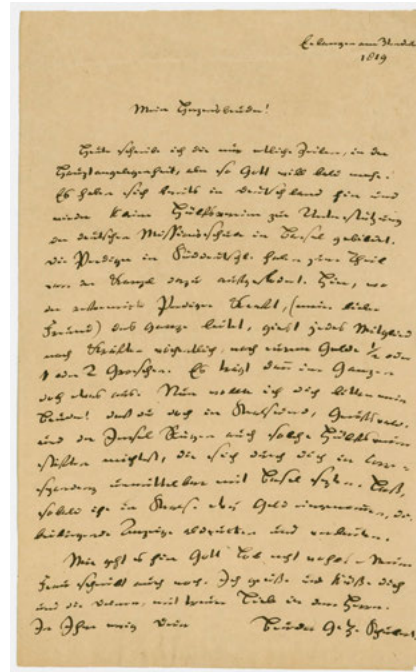 Erlangen am
1819
Mein Herzensbruder!
Heute schreibe ich dir nur etliche Zeilen, in der
Hauptangelegenheit, aber so Gott will bald mehr.
Es haben sich bereits in Deutschland hin und
wieder kleine Hülfsvereine zur Unterstützung
der deutschen Missionsschule in Basel gebildet.
Die Prediger in Süddeutschl. haben zum Theil
von der Kanzel dazu aufgefordert. Hier, wo
der reformirte Prediger Krafft, (mein lieber
Freund) das Ganze leitet, giebt jedes Mitglied
nach Kräften wöchentlich, nach unserm Gelde ½ oder
1 oder 2 Groschen. Es trägt dann im Ganzen
doch etwas aus. Nun wollte ich dich bitten mein
Bruder! daß du doch in Stralsund,
und der Insel Rügen auch solche Hülfsvereine
stiften möchtest, die sich durch dich in Corre-
spondenz unmittelbar mit Basel setzen. Laß,
sobald ihr in Stral. etwas Geld eingenommen, die
beiliegende Anzeige abdrucken und verbreiten.
Mir geht es hier Gott Lob recht wohl. Meine
Frau schreibt auch noch. Ich grüße und küße dich
und die Deinen, mit treuer Liebe in dem Herrn.
In Ihm ewig Dein Bruder G. H. Schubert.